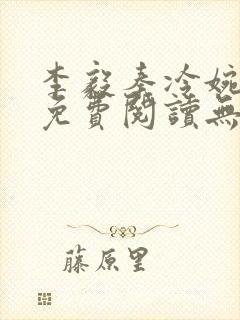 李毅秦冷婉
免費閱讀無
藤原里